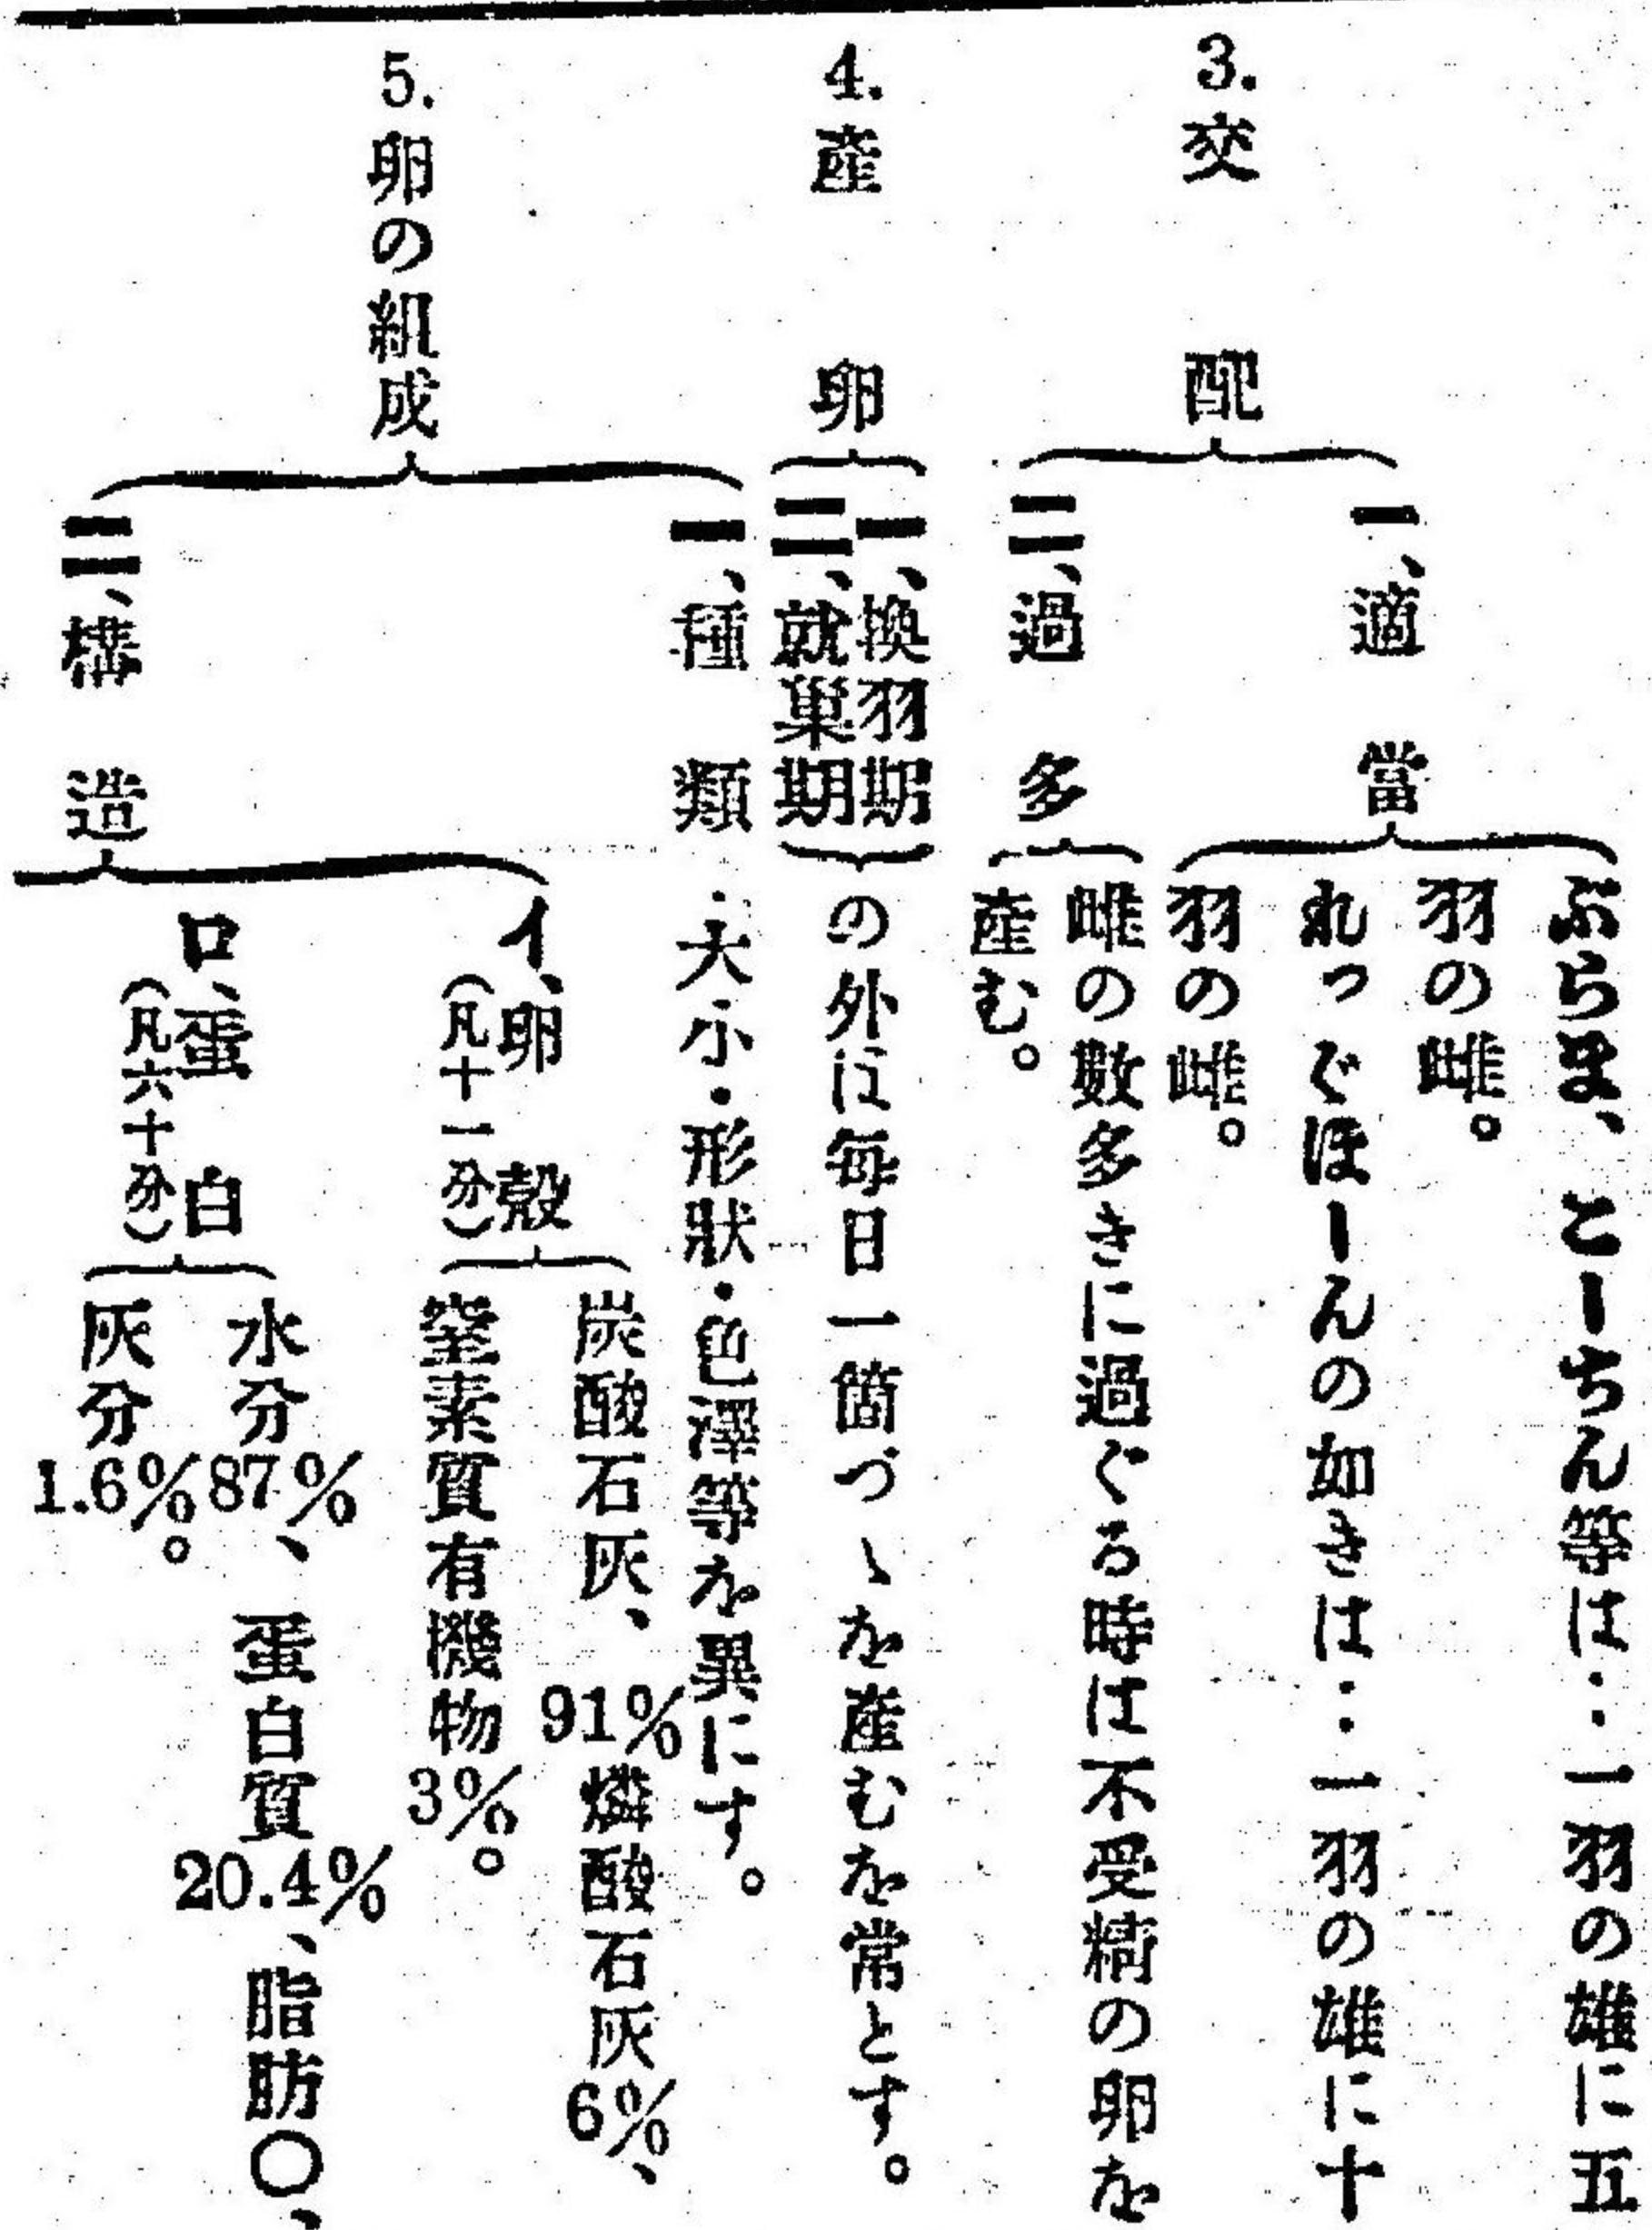 3. 交配
一、適當
ぶらま、こーちん等は‥一羽の雄に五
羽の雌。
れっぐほーんの如きは‥一羽の雄に十
羽の雌。
二、過多
雌の數多きに過ぐる時は不受精の卵を
産む。
4. 産卵
一、換羽期
二、就巣期
の外に毎日一箇づゝを産むを常とす。
5. 卵の組成
一、種類
・大小・形狀・色澤等を異にす。
二、構造
イ、卵殼
(凡十一分)
炭酸石灰、91%燐酸石灰6%、
窒素質有機物3%。
ロ、蛋白
(凡六十分)
水分87%、蛋白質20.4%、脂肪〇、
灰分1.6%。